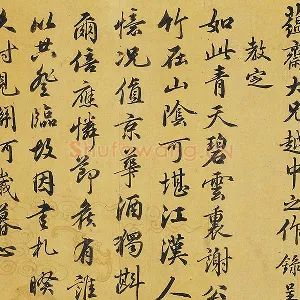 齋大兄越中之作錄呈
教定
如此青天碧雲裏謝公
竹在山陰可堪江漢人
憶況值京華酒獨斟
爾倍應憐節候有誰
以共登臨故因書札睽
歲暮心